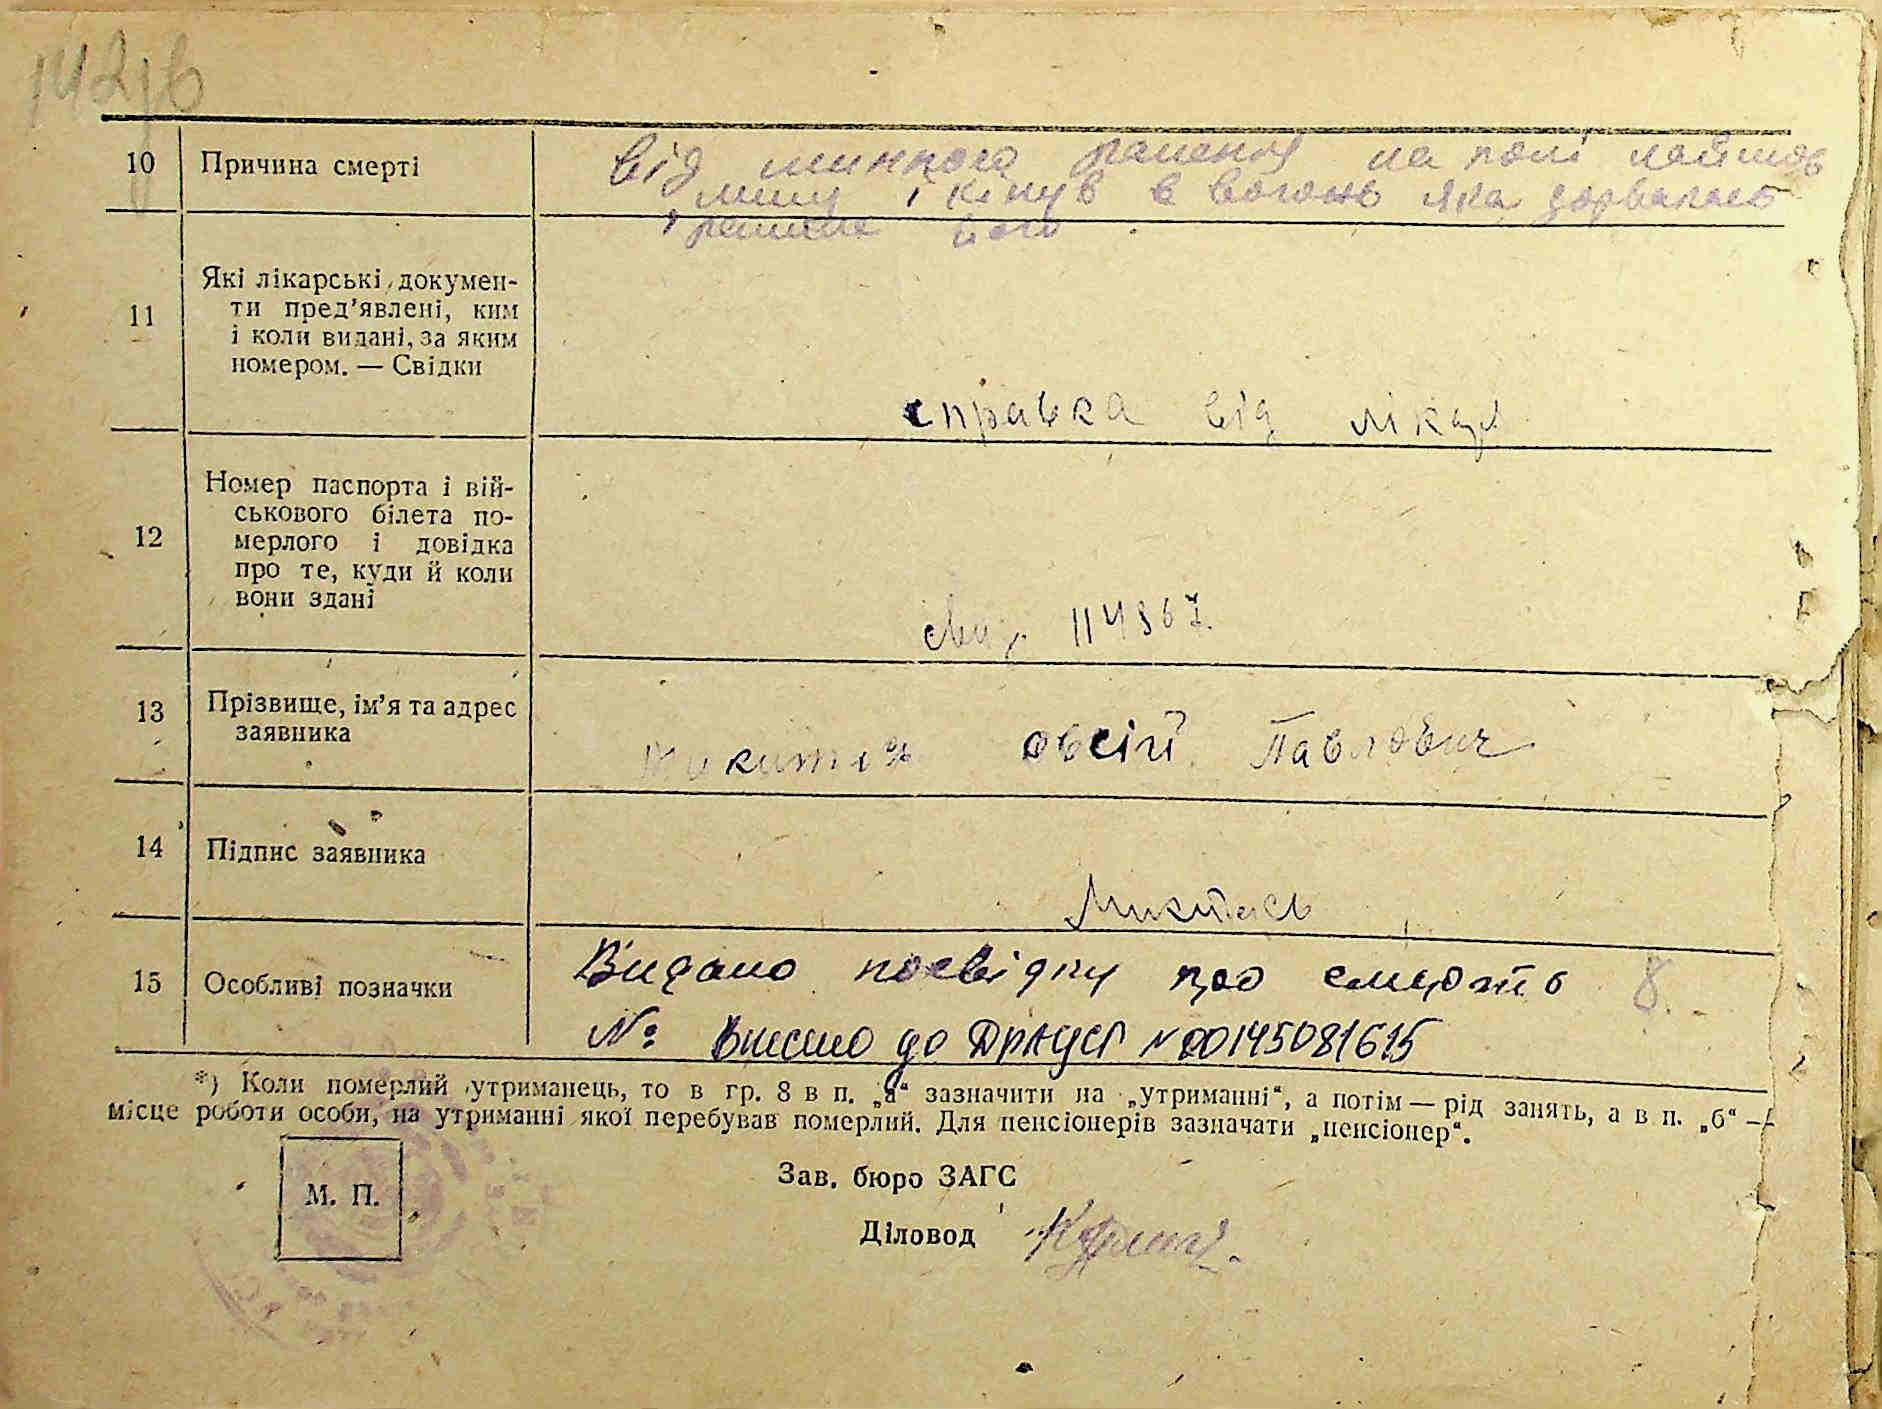 142/в
10 Причина смерті
від минного раненя на полі найшов
мину і кинув в вогонь яка зорвалась
і ранила його
11 Які лікарські документи
ти пред'явлені, ким
і коли видані, за яким
номером. — Свідки
справка від лікаря
12 Номер паспорта і вій-
ськового білета по-
мерлого і довідка
про те, куди й коли
вони здані
114867
13 Прізвище, ім'я та адрес
заявника
Микитась Овсій Павлович
14 Підпис заявника
Микитась
15 Особливі позначки
Видано посвідку про смерть 8
№: Внесено до ДРАЦСГ №00145081615
*) Коли померлий утриманець, то в гр. 8 в п. „а“ зазначити на „утриманні“, а потім — рід занять, а в п. „б“ —
місце роботи особи, на утриманні якої перебував померлий. Для пенсіонерів зазначати „пенсіонер“.
М. П.
Зав. бюро ЗАГС
Діловод